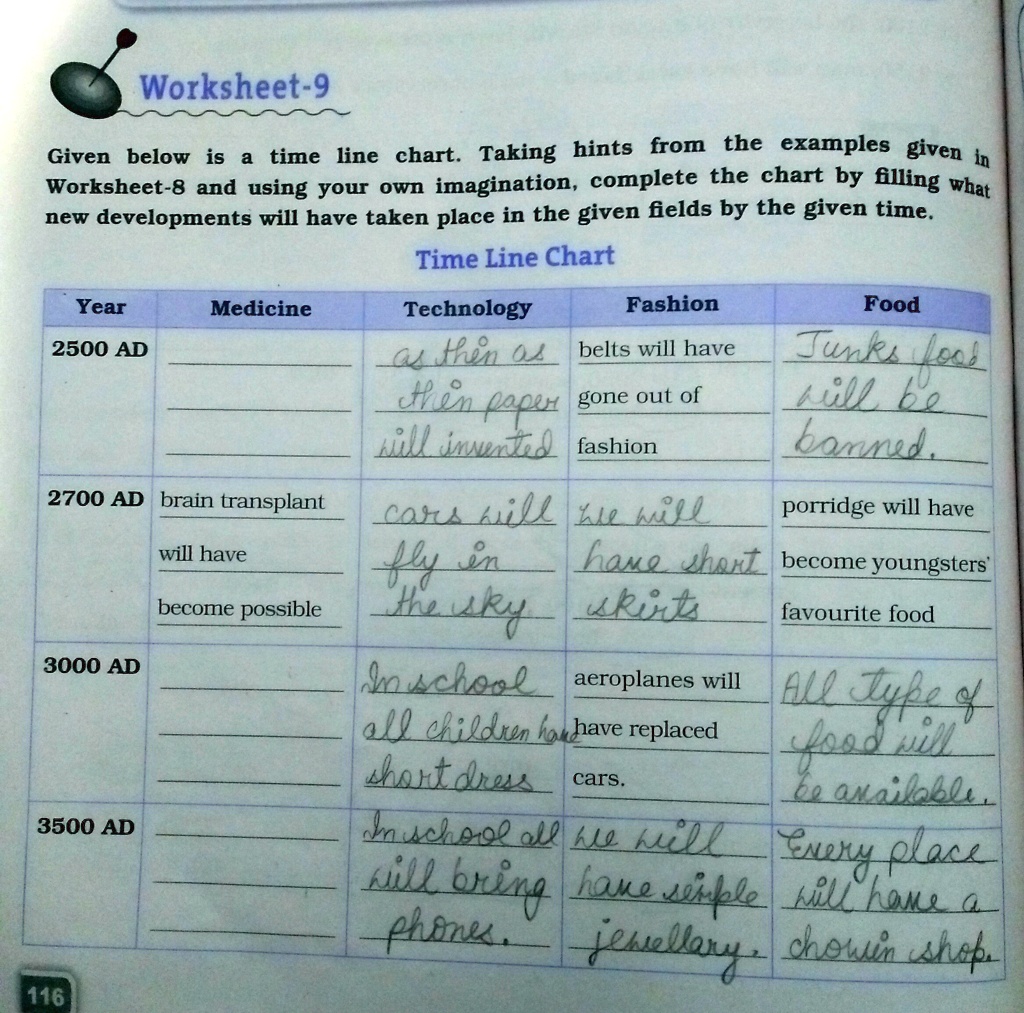 Worksheet-9
Given below is a time line chart. Taking hints from the examples given in
Worksheet-8 and using your own imagination, complete the chart by filling what
new developments will have taken place in the given fields by the given time.
Time Line Chart
Year Medicine Technology Fashion Food
2500 AD as thin as belts will have Junks food
thin paper gone out of will be
will invented fashion banned.
2700 AD brain transplant cars will we will porridge will have
will have fly in have short become youngsters'
become possible the sky skirts favourite food
3000 AD In school aeroplanes will All type of
all children have have replaced food will
short dress cars. be available.
3500 AD In school all we will Every place
will bring have simple will have a
phones. jewellary. chowin shop.
116